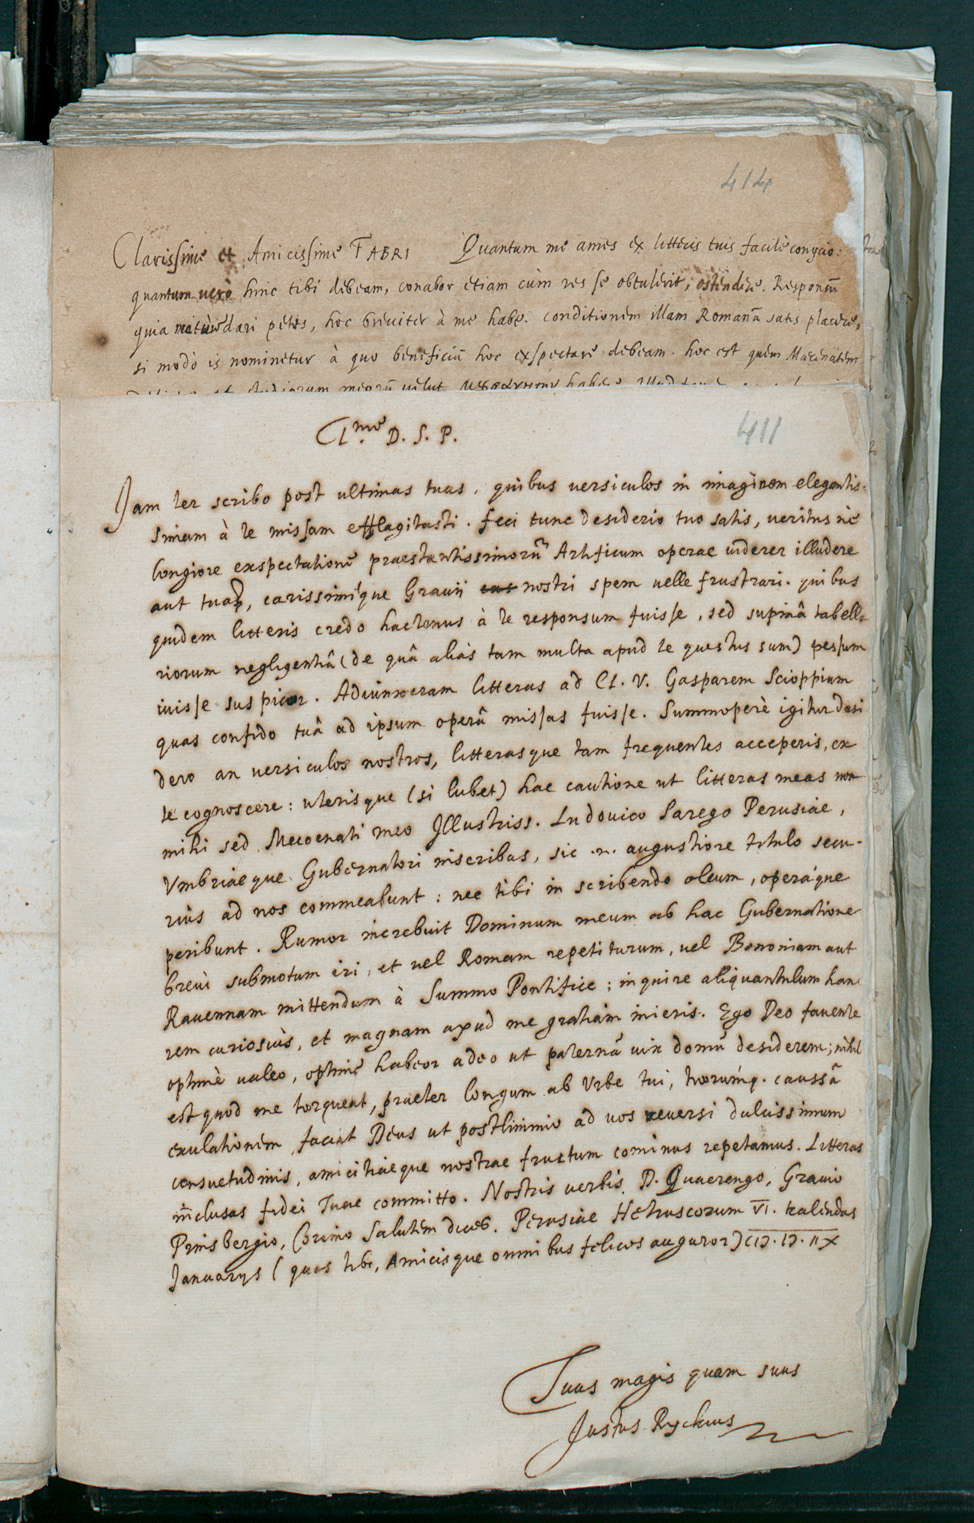 414
Clarissime et Amicissime FABRI Quantum me ames ex litteris tuis facilè conijcio:
quantum verò hinc tibi debeam, conabor etiam cùm res se obtulerit, ostendere. Responsũ
quia maturè dari petis, hoc breviter à me habe. conditionem illam Romanã satis placere,
si modò is nominetur à quo beneficiũ hoc exspectare debeam. hoc est quem Maecenatem
411
Cl.me D. S. P.
Jam ter scribo post ultimas tuas, quibus versiculos in imaginem elegantis-
simam à te missam efflagitasti. feci tunc desiderio tuo satis, veritus nè
longiore exspectatione praestantissimorũ Artificum operae viderer illudere
aut tuam, carissimique Grauij eas nostri spem velle frustrari. quibus
quidem litteris credo hactenus à te responsum fuisse, sed supinâ tabella-
riorum negligentiâ (de quâ aliàs tam multa apud te questus sum) pessum
iuisse suspicor. Adiunxeram litteras ad Cl. V. Gasparem Scioppium
quas confido tuâ ad ipsum operâ missas fuisse. Summoperè igitur desi
dero an versiculos nostros, litterasque tam frequentes acceperis, ex
te cognoscere: uterisque (si lubet) hac cautione ut litteras meas non
mihi sed Mecoenati meo Jllustriss. Ludouico Sarego Perusiae,
Vmbriaeque Gubernatori inscribas, sic .n. augustiore titulo secu-
riùs ad nos commeabunt: nec tibi in scribendo oleum, operáque
peribunt. Rumor increbuit Dominum meum ab hac Gubernatione
breui submotum iri, et vel Romam repetiturum, vel Bononiam aut
Rauennam mittendum à Summo Pontifice; inquire aliquantulum hanc
rem curiosiùs, et magnam apud me gratiam inieris. Ego Deo fauente
optimè ualeo, optimè habeor adeo ut paternã vix domũ desiderem; nihil
est quod me torqueat, praeter longum ab Vrbe tui, horumq. caussâ
exulationem, faciat Deus ut postliminio ad vos reuersi dulcissimum
consuetudinis, amicitiaeque nostrae fructum cominus repetamus. Litteras
inclusas fidei Tuae committo. Nostris verbis D. Quaerengo, Grauio
Prinsbergio, Corino Salutem dices. Perusiae Hetruscorum VI. kalendas
Januarys (quas tibi, Amicisque omnibus felices auguror) CIƆ.IƆ.IIX
Tuus magis quam suus
Justus Ryckius